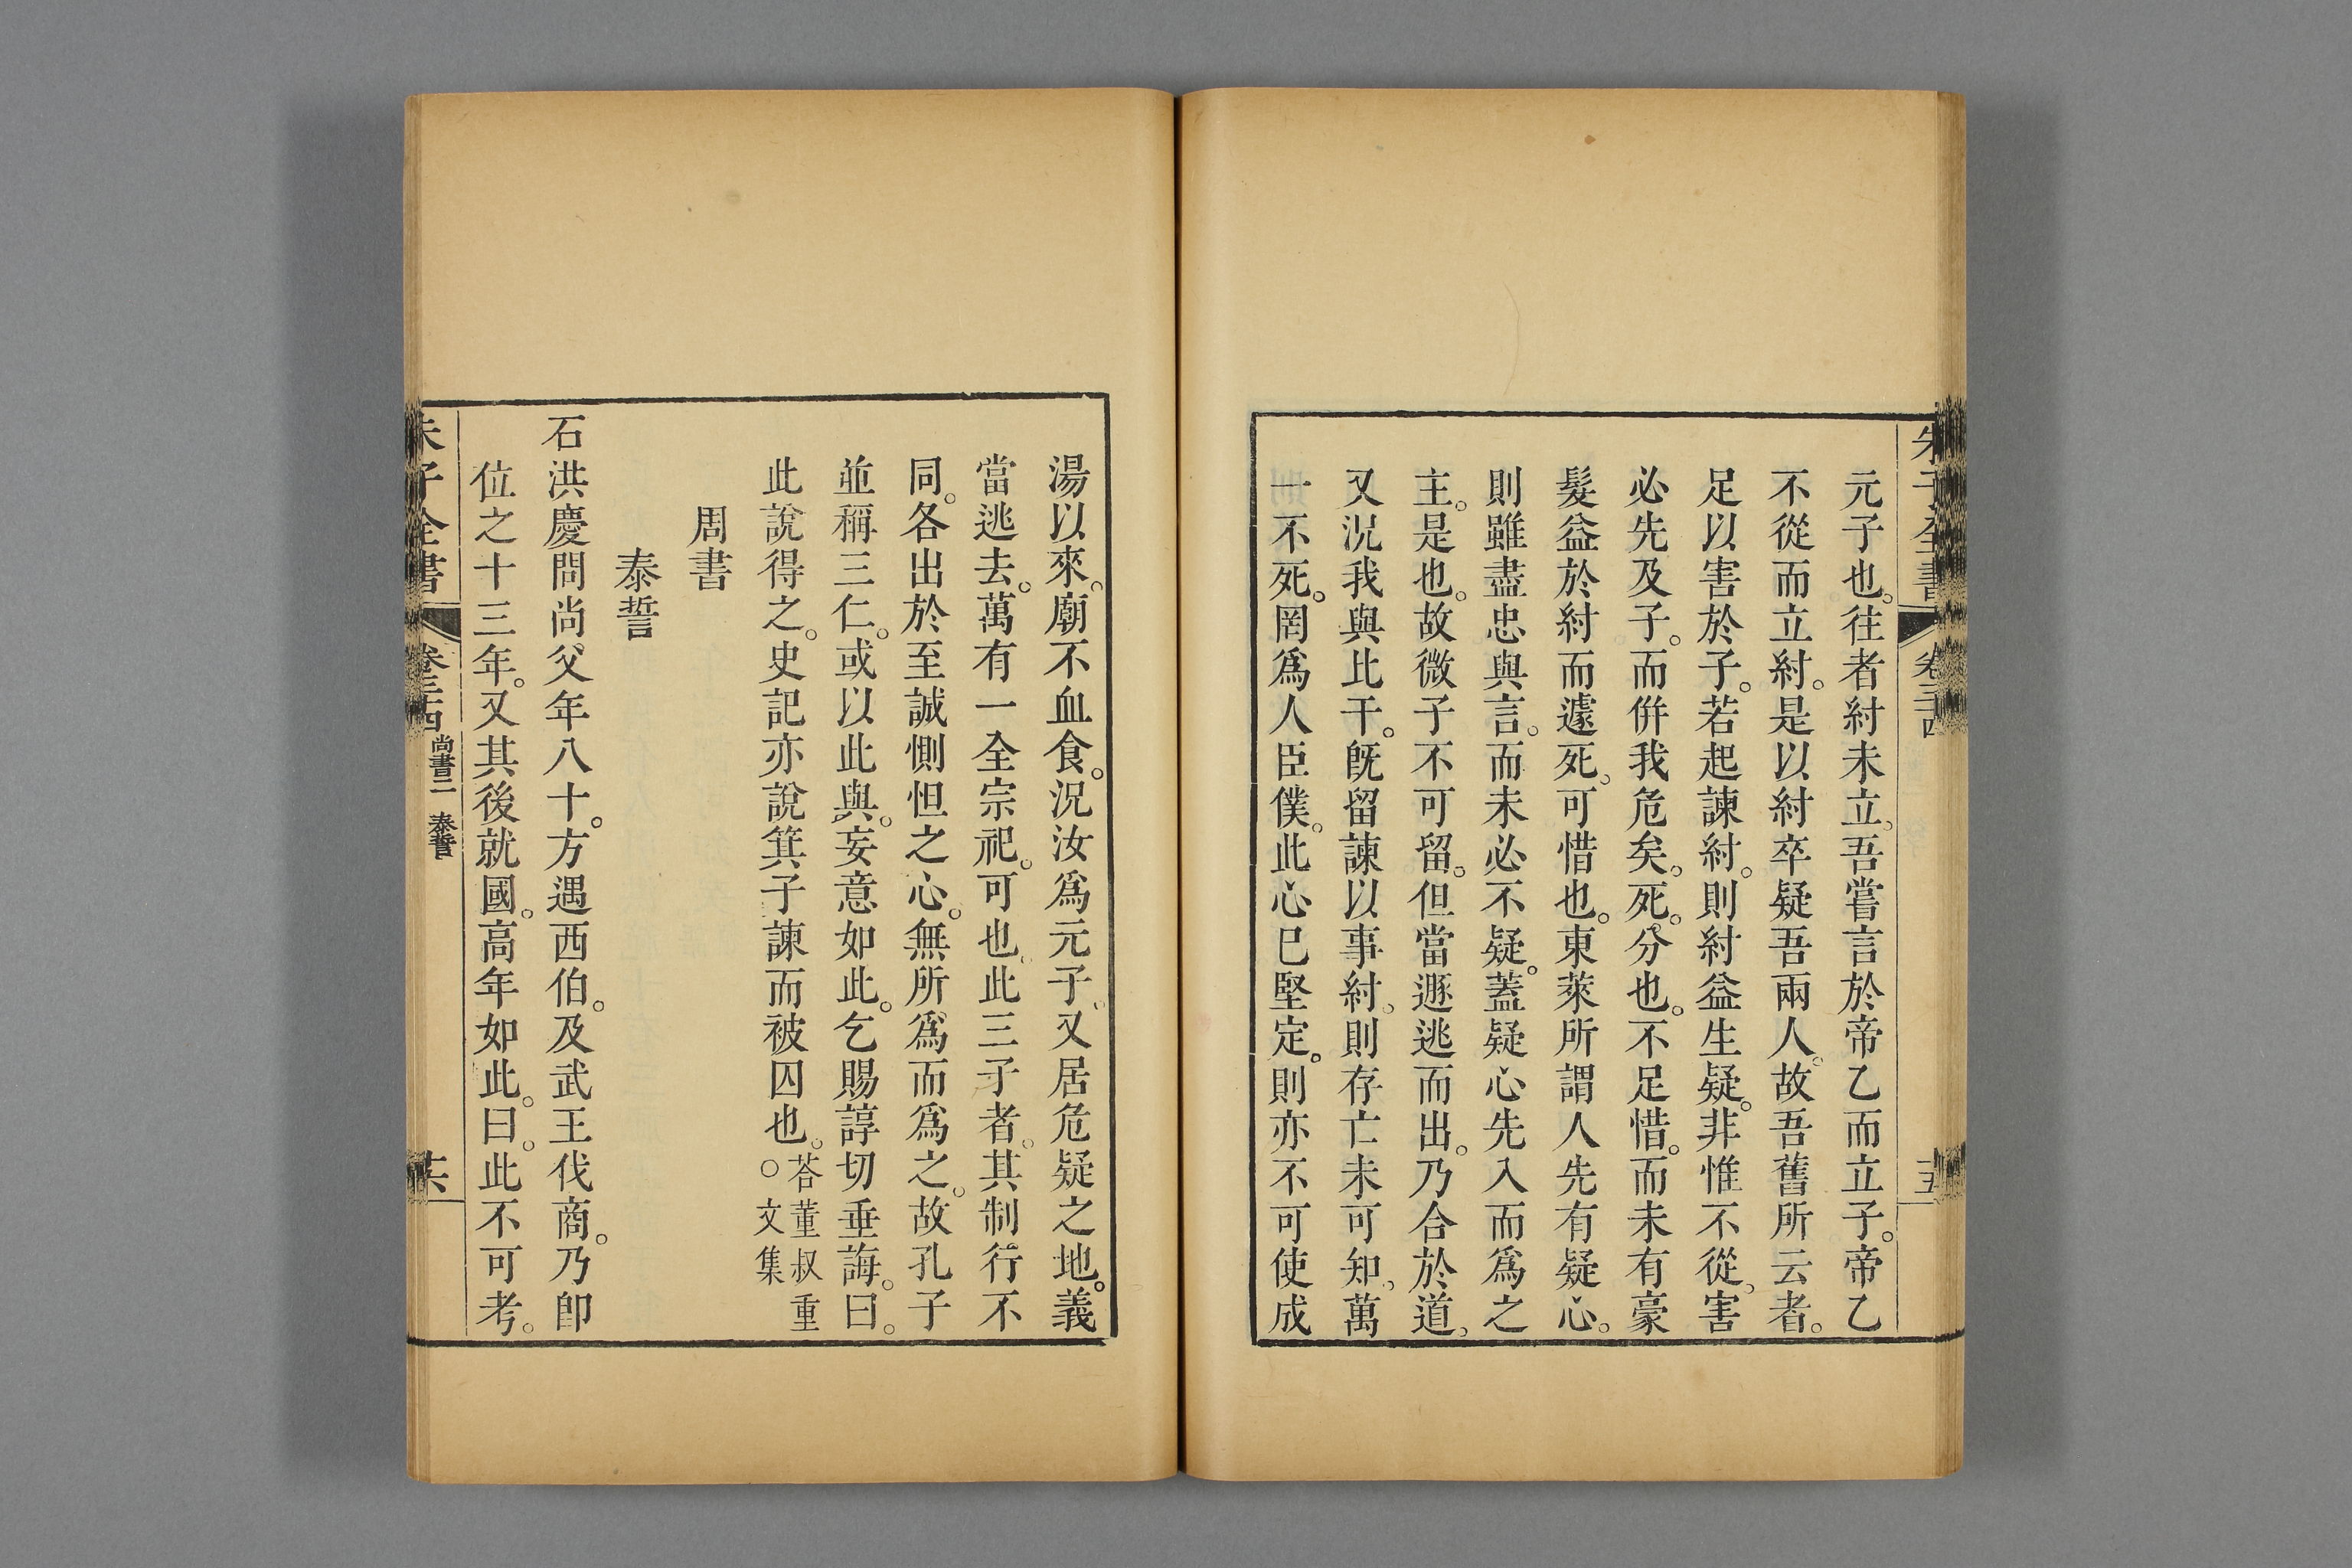 朱子全書 卷三十四 十五
元子也。往者紂未立。吾嘗言於帝乙而立子。帝乙
不從而立紂。是以紂卒疑吾兩人。故吾舊所云者。
足以害於子。若起諫紂。則紂益生疑。非惟不從。害
必先及子。而併我危矣。死。分也。不足惜。而未有豪
髮益於紂而遽死。可惜也。東萊所謂人先有疑心。
則雖盡忠與言。而未必不疑。蓋疑心先入而爲之
主。是也。故微子不可留。但當遯逃而出。乃合於道。
又況我與比干。旣留諫以事紂。則存亡未可知。萬
一不死。罔爲人臣僕。此心已堅定。則亦不可使成
湯以來。廟不血食。況汝爲元子。又居危疑之地。義
當逃去。萬有一全宗祀。可也。此三子者。其制行不
同。各出於至誠惻怛之心。無所爲而爲之。故孔子
並稱三仁。或以此與。妄意如此。乞賜諄切垂誨。曰。
此說得之。史記亦說箕子諫而被囚也。答董叔重○文集
周書
泰誓
石洪慶問尚父年八十。方遇西伯。及武王伐商。乃卽
位之十三年。又其後就國。高年如此。曰。此不可考。
朱子全書 卷三十四 尚書二 泰誓 十六